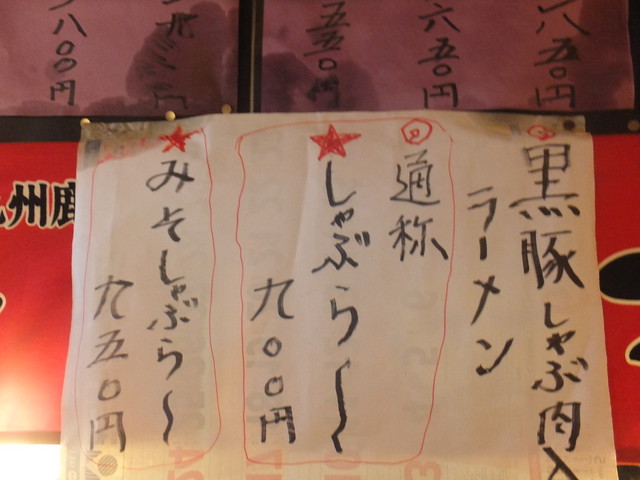 八五〇円
六五〇円
五五〇円
八〇〇円
黒豚しゃぶ肉入
ラーメン
通称
しゃぶら〜
九〇〇円
みそしゃぶら〜
九五〇円
九州鹿